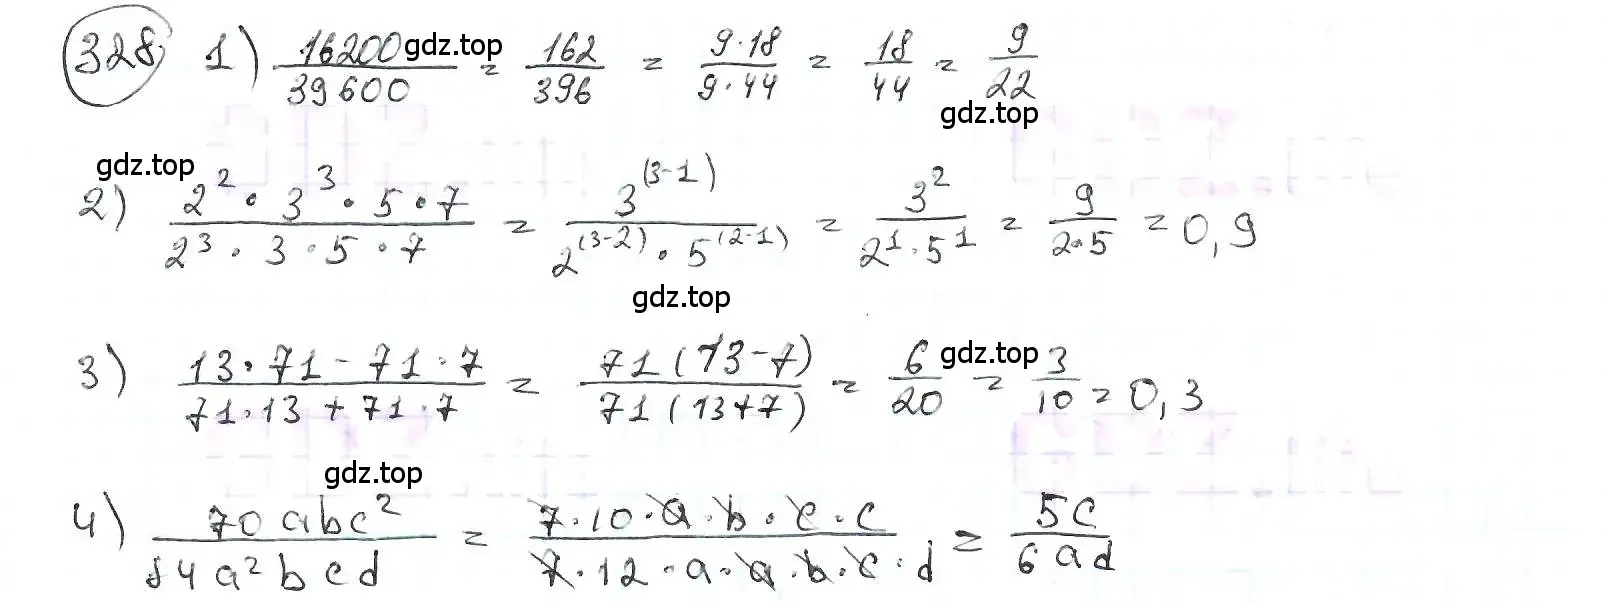 328 1) 16200/39600 = 162/396 = 9·18/9·44 = 18/44 = 9/22
gdz.top
gdz.top
gdz.top
2) 2² · 3³ · 5 · 7 / 2³ · 3 · 5 · 7 = 3^(3-1) / 2^(3-2) · 5^(2-1) = 3² / 2¹ · 5¹ = 9 / 2·5 = 0,9
gdz.top
3) 13·71 - 71·7 / 71·13 + 71·7 = 71(13-7) / 71(13+7) = 6/20 = 3/10 = 0,3
gdz.top
gdz.top
4) 70abc² / 84a²bcd = 7·10·a·b·c·c / 7·12·a·a·b·c·d = 5c / 6ad